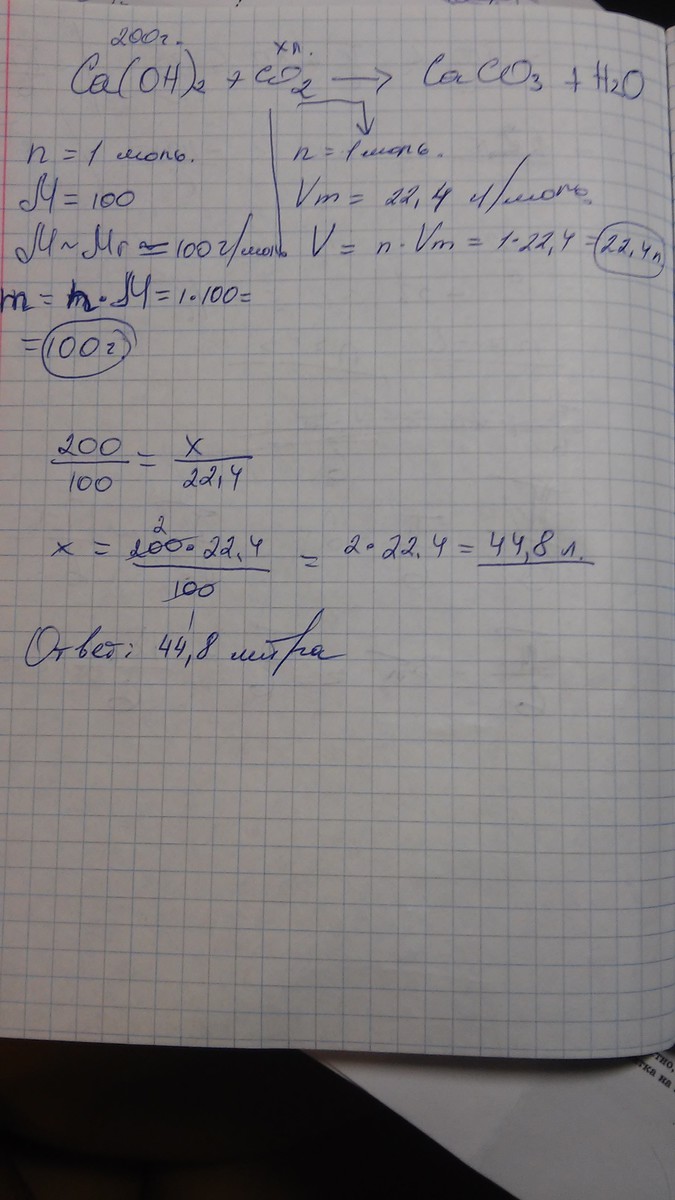 200г. xл.
Ca(OH)2 + CO2 → CaCO3 + H2O
n = 1 моль.
M = 100
M ~ Mr ≈ 100 г/моль
m = n · M = 1 · 100 =
= 100 г
n = 1 моль.
Vm = 22,4 л/моль
V = n · Vm = 1 · 22,4 = 22,4 л
200/100 = x/22,4
x = 200 · 22,4 / 100 = 2 · 22,4 = 44,8 л.
2
1
Ответ: 44,8 литра